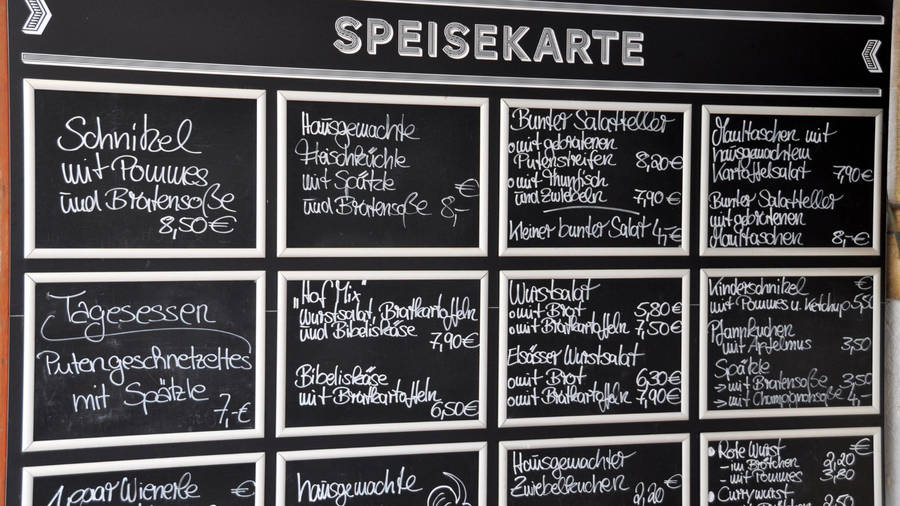 SPEISEKARTE
Schnitzel
mit Pommes
und Bratensoße
8,50€
Hausgemachte
Fleischküchle
mit Spätzle €
und Bratensoße 8,-
Bunter Salatteller
o mit gebratenen
Putenstreifen 8,20€
o mit Thunfisch
und Zwiebeln 7,90€
Kleiner bunter Salat 4,-€
Maultaschen mit
hausgemachtem
Kartoffelsalat 7,90€
Bunter Salatteller
mit gebratenen
Maultaschen 8,-€
Tagesessen
Putengeschnetzeltes
mit Spätzle
7,-€
"Hof Mix"
Wurstsalat, Bratkartoffeln
und Bibeliskäse
7,90€
Bibeliskäse
mit Bratkartoffeln
6,50€
Wurstsalat
o mit Brot 5,80€
o mit Bratkartoffeln 7,50€
Elsässer Wurstsalat
o mit Brot 6,30€
o mit Bratkartoffeln 7,90€
Kinderschnitzel €
mit Pommes u. Ketchup 5,50
Pfannkuchen
mit Apfelmus 3,50
Spätzle
> mit Bratensoße 3,50
> mit Champignonsoße 4,-
1 paar Wienerle €
hausgemachte
Hausgemachter
Zwiebelkuchen
2,20€
• Rote Wurst €
- im Brötchen 2,20
- mit Pommes 3,80
• Currywurst
2,50